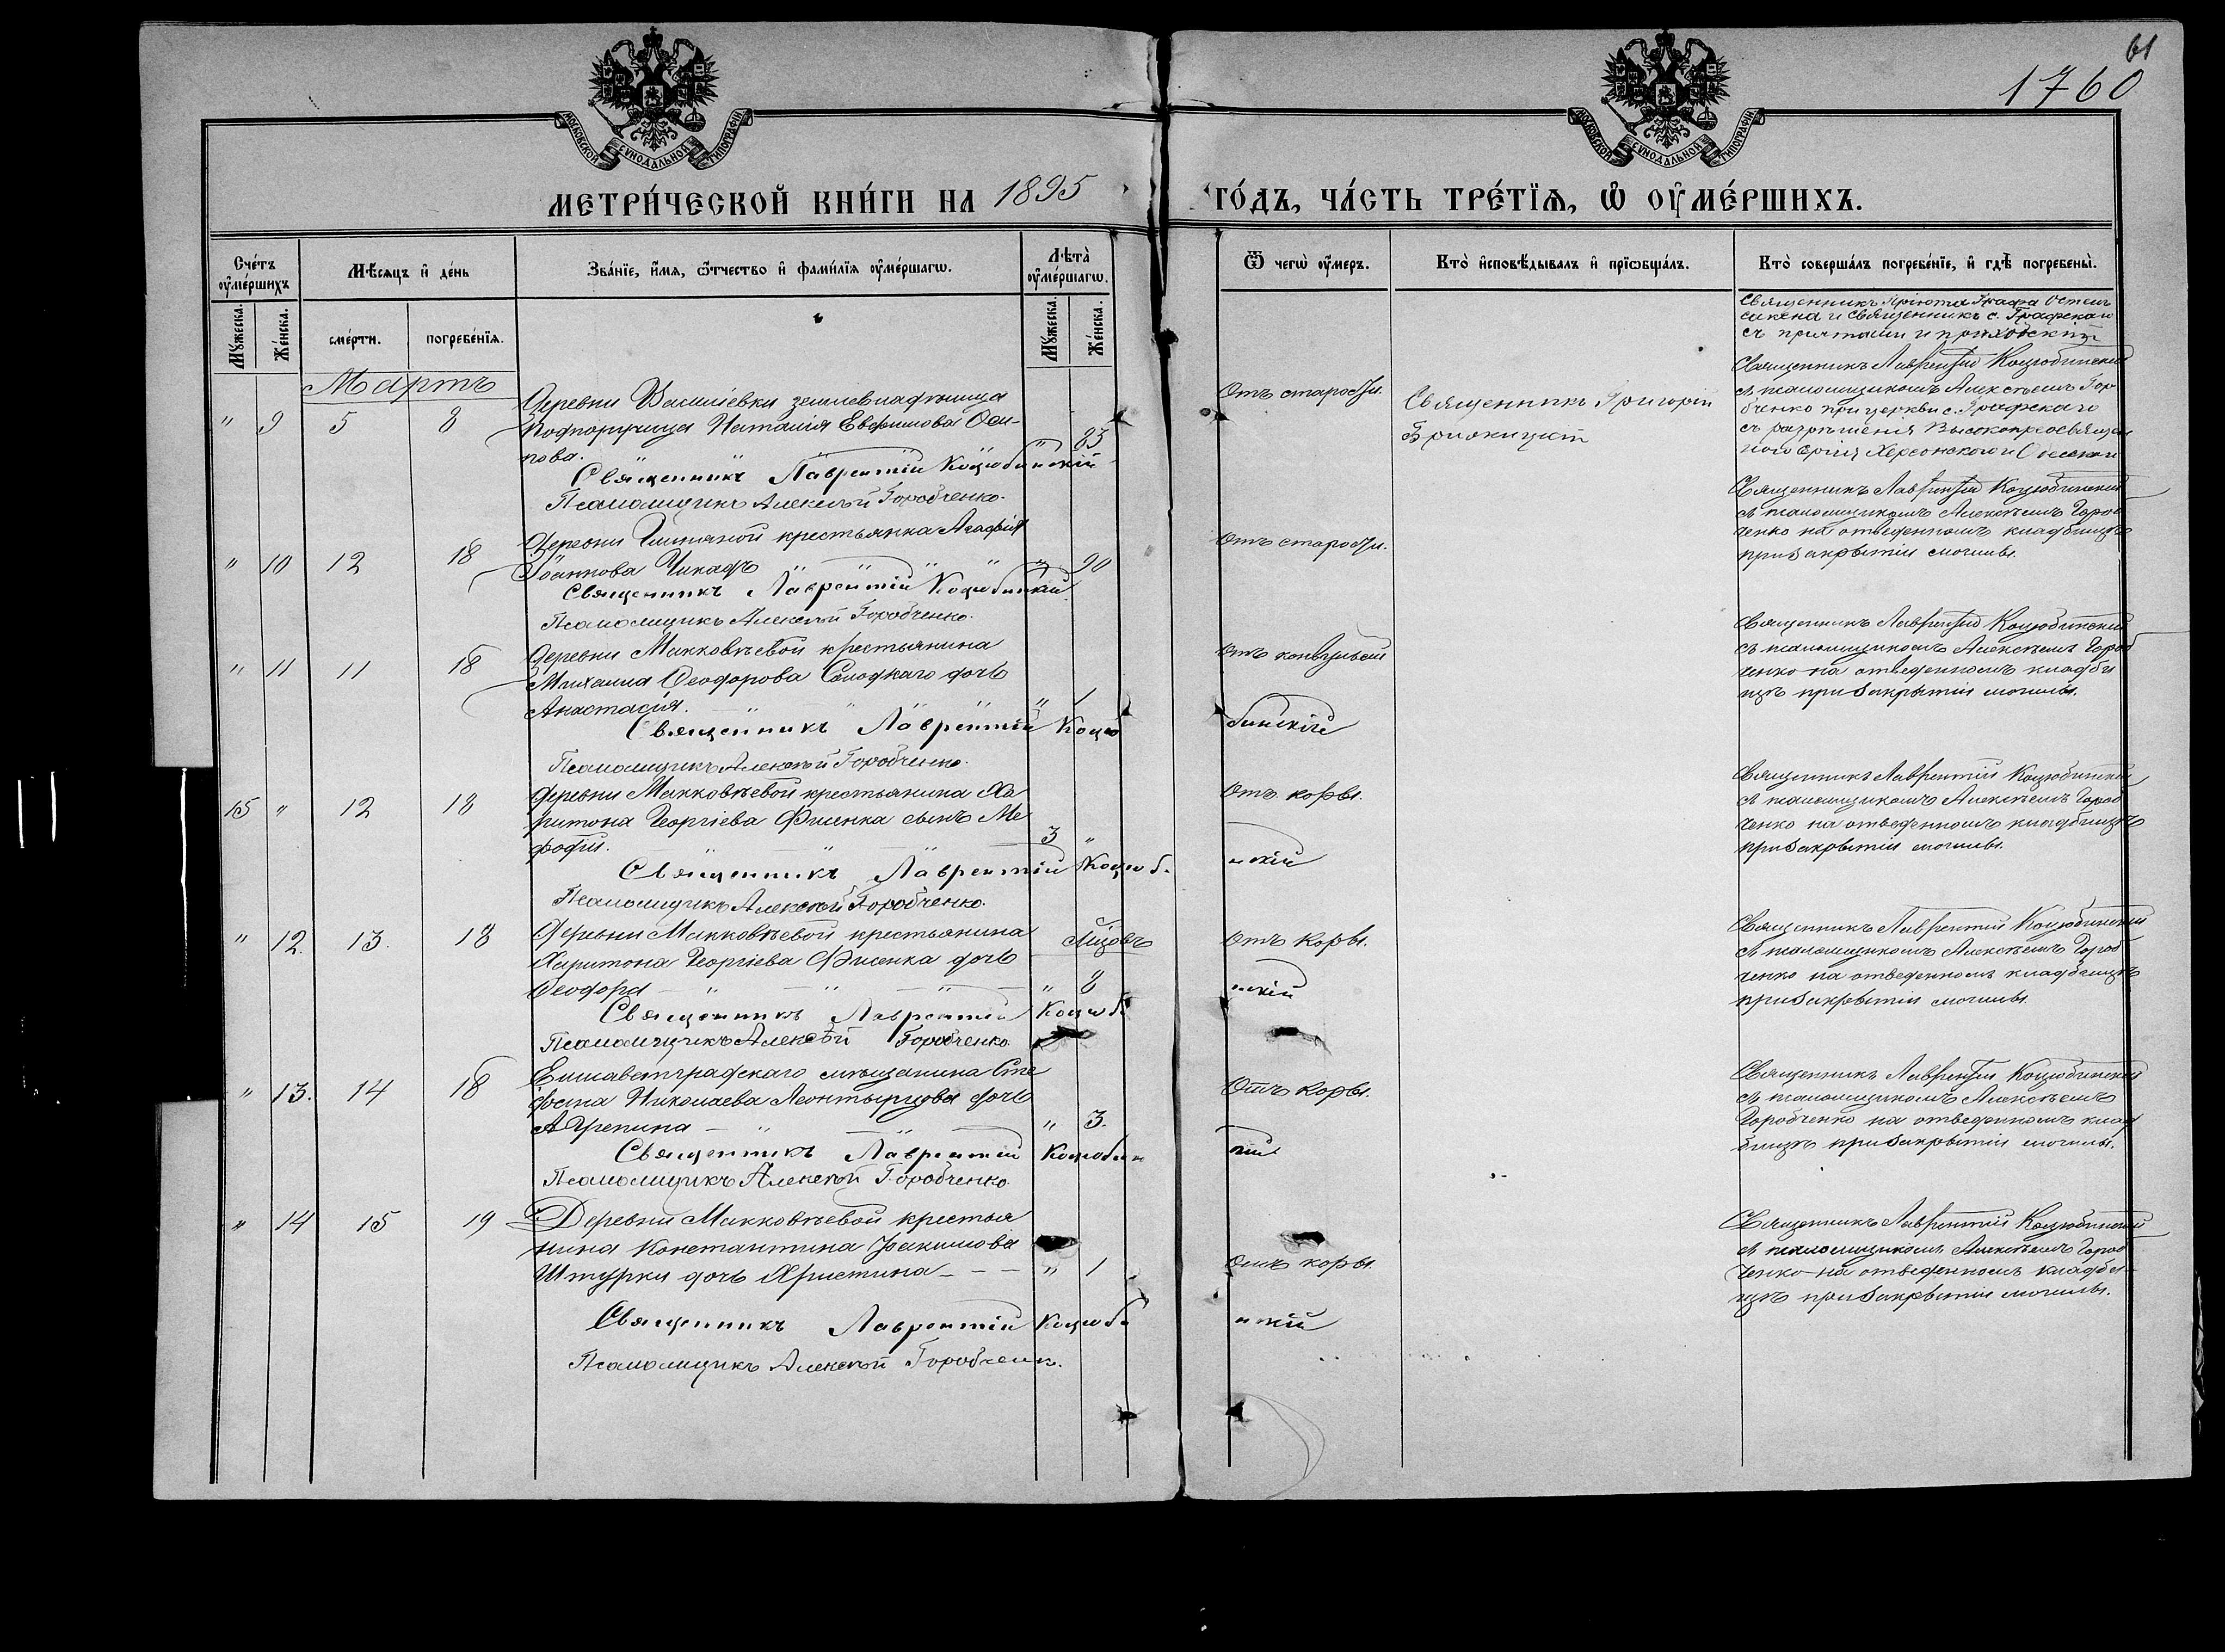 61
1760
МОСКОВСКОЙ СУНОДАЛЬНОЙ ТИПОГРАФІИ
МОСКОВСКОЙ СУНОДАЛЬНОЙ ТИПОГРАФІИ
МЕТРИ́ЧЕСКОЙ КНИ́ГИ НА 1895 ГО́ДЪ, ЧА́СТЬ ТРЕ́ТЇѦ, Ѡ ОУМЕ́РШИХЪ.
Сче́тъ оуме́ршихъ
Мѣ́сяцъ и де́нь
Зва́нїе, и́мѧ, ѿтчество и фами́лїѧ оуме́ршагѡ.
Лѣта̀ оуме́ршагѡ.
Ѿ чегѡ̀ оу́меръ.
Кто̀ исповѣ́дывалъ и прїѡбща́лъ.
Кто̀ соверша́лъ погребе́нїе, и гдѣ̀ погребены̀.
Мꙋжеска.
Же́нска.
сме́рти.
погребе́нїѧ.
Мꙋжеска.
Же́нска.
Мартъ
Священникъ Пріюта Графа Остенъ
Сакена и Священникъ с. Графскаго
съ причтами
" 9 5 8
Деревни Василіевки землевладѣлица
Подпоручица Наталія Евфимова Оси-
пова. " 83
Священникъ Лаврентій Коцюбинскій
Псаломщикъ Алексѣй Горобченко.
Отъ старости.
Священникъ Григорій
Священникъ Лаврентій Коцюбинскій
съ псаломщикомъ Алексѣемъ Горо
бченко при церкви с. Графскаго
съ разрѣшенія Высокопреосвящен
наго Сергія Херсонскаго и Одесскаго
" 10 12 18
Деревни крестьянка Агафія
Іоаннова Чикадъ " 90
Священникъ Лаврентій Коцюбинскій.
Псаломщикъ Алексѣй Горобченко.
Отъ старости.
Священникъ Лаврентій Коцюбинскій
съ псаломщикомъ Алексѣемъ Гороб
ченко на отведенномъ кладбищѣ
при закрытіи могилы.
" 11 11 18
Деревни Маккавѣевой крестьянина
Михаила Ѳеодорова Солодкаго дочь
Анастасія. " 1
Священникъ Лаврентій Коцю бинскій
Псаломщикъ Алексѣй Горобченко.
Отъ конвульсій
Священникъ Лаврентій Коцюбинскій
съ псаломщикомъ Алексѣемъ Гороб
ченко на отведенномъ кладби
щѣ при закрытіи могилы.
15 " 12 18
Деревни Маккавѣевой крестьянина Ха
ритона Георгіева Фисенка сынъ Ме
фодій. 3 "
Священникъ Лаврентій Коцюб. нскій
Псаломщикъ Алексѣй Горобченко.
Отъ кори.
Священникъ Лаврентій Коцюбинскій
съ псаломщикомъ Алексѣемъ Гороб
ченко на отведенномъ кладбищѣ
при закрытіи могилы.
" 12. 13. 18
Деревни Маккавѣевой крестьянина
Харитона Георгіева Фисенка дочь
Ѳеодора " Мѣсяцовъ 8
Священникъ Лаврентій Коцюби нскій
Псаломщикъ Алексѣй Горобченко
Отъ кори.
Священникъ Лаврентій Коцюбинскій
съ псаломщикомъ Алексѣемъ Гороб
ченко на отведенномъ кладбищѣ
при закрытіи могилы.
" 13. 14 18
Елисаветградскаго мѣщанина Сте
фана Николаева дочь
Агрепина " 3.
Священникъ Лаврентій Коцюбин
Псаломщикъ Алексѣй Горобченко
Отъ кори.
Священникъ Лаврентій Коцюбинскій
съ псаломщикомъ Алексѣемъ
Горобченко на отведенномъ клад
бищѣ при закрытіи могилы.
" 14 15 19
Деревни Маккавѣевой крестья
нина Константина Іоакимова
Штурки дочь Христина " 1
Священникъ Лаврентій Коцюби нскій
Псаломщикъ Алексѣй Горобченко.
Отъ кори.
Священникъ Лаврентій Коцюбинскій
съ псаломщикомъ Алексѣемъ Гороб
ченко на отведенномъ кладби
щѣ при закрытіи могилы.